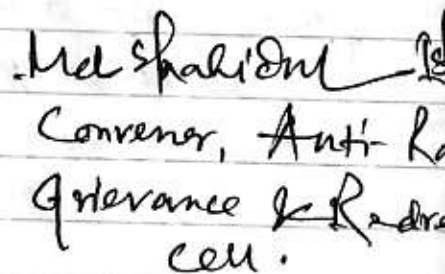 Md Shahidul Is
Convener, Anti-Ra
Grievance & Redre
Cell.